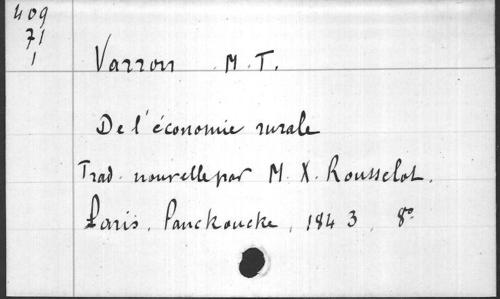 409
71
1
Varron M. T.
De l'économie rurale
Trad. nouvelle par M. X. Rousselot.
Paris, Panckoucke, 1843, 8°